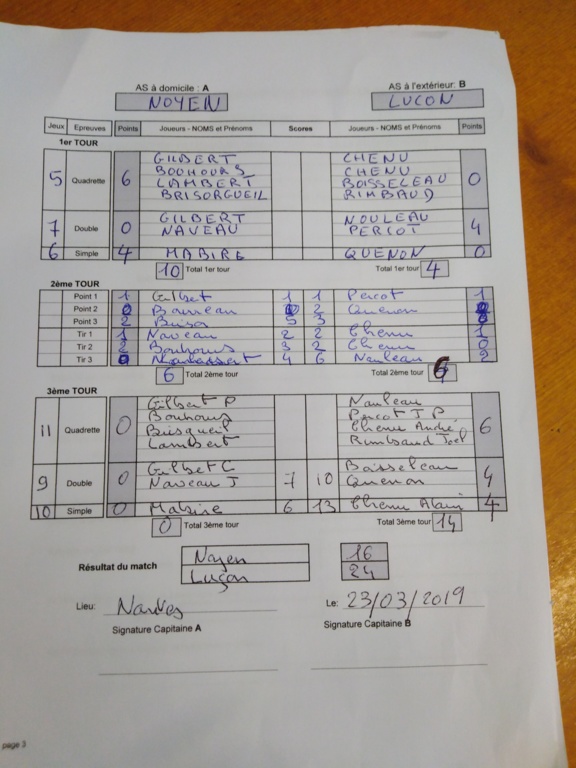 AS à domicile : A AS à l'extérieur: B
NOYEN LUCON
Jeux Epreuves Points Joueurs - NOMS et Prénoms Scores Joueurs - NOMS et Prénoms Points
1er TOUR
GILBERT CHENU
BOUHOURS CHENU
5 Quadrette 6 LAMBERT BOISSELEAU 0
BRISORGUEIL RIMBAUD
GILBERT NOULEAU
7 Double 0 NAVEAU PERCOT 4
6 Simple 4 MABIRE QUENON 0
10 Total 1er tour Total 1er tour 4
2ème TOUR
Point 1 1 Gilbet 1 1 Percot 1
Point 2 2 Quenon
Point 3 2 5 3 0
Tir 1 1 Naveau 2 2 Chenu 1
Tir 2 2 Bouhours 3 2 Chenu 0
Tir 3 0 4 6 Nauleau 2
6 Total 2ème tour Total 2ème tour 6
3ème TOUR
Gilbert P Nauleau
Bouhours Percot J P
11 Quadrette 0 Chenu André 6
Lambert Rimbaud Joel
Gilbet C Boisseleau
9 Double 0 Naveau J 7 10 Quenon 4
10 Simple 0 Mabire 6 13 Chenu Alain 4
0 Total 3ème tour Total 3ème tour 14
Résultat du match Noyen 16
Luçon 24
Lieu: Nantes Le: 23/03/2019
Signature Capitaine A Signature Capitaine B
page 3